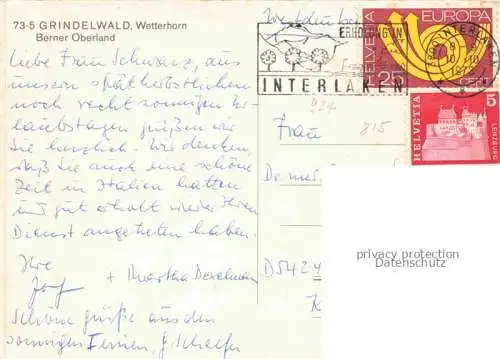 73-5 GRINDELWALD, Wetterhorn
Berner Oberland
Liebe Frau Schwarz, aus
unseren spätherbstlichen
noch recht sonnigen Ur-
laubstagen grüßen wir
Sie herzlich. Wir denken,
daß Sie auch eine schöne
Zeit in Italien hatten
und gut erholt wieder Ihren
Dienst angetreten haben.
Ihre
+ Martha
Schöne Grüße aus den
sonnigen Ferien, G. Schaefer
ERHOLUNG IN
INTERLAKEN
HELVETIA
EUROPA
25
CEPT
HELVETIA
5
LENZBURG
924
815
Frau
Dr. me
D 542
K
privacy protection
Datenschutz